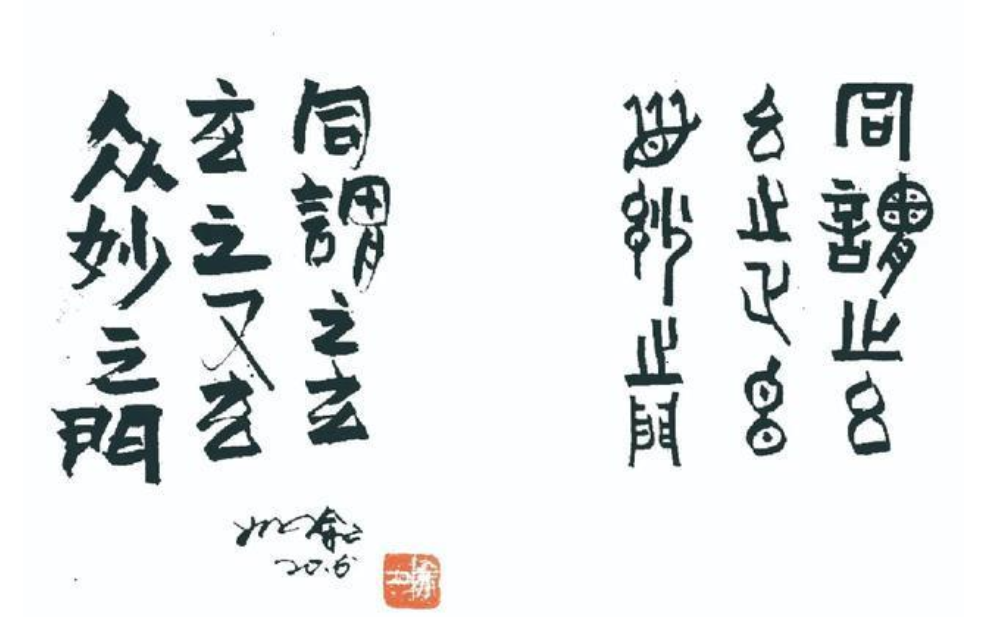 同謂之玄
玄之又玄
众妙之門
同謂之玄
玄之又玄
众妙之門
20.6